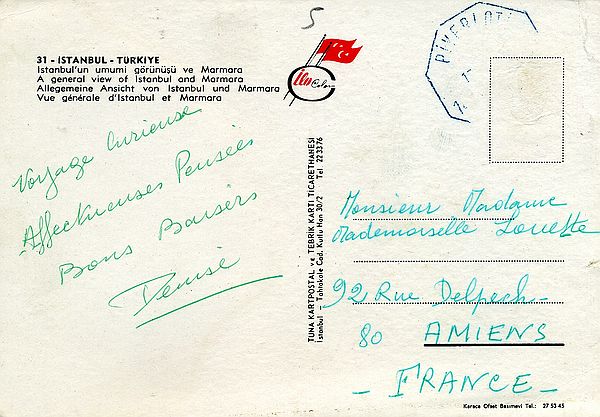 5
31 - İSTANBUL - TÜRKİYE
İstanbul'un umumi görünüşü ve Marmara
A general view of İstanbul and Marmara
Allegemeine Ansicht von İstanbul und Marmara
Vue générale d'İstanbul et Marmara
Color
Voyage Curieuse
Affectueuses Pensées
Bons Baisers
Denise
TUNA KARTPOSTAL ve TEBRİK KARTI TİCARETHANESİ
İstanbul - Tahtakale Cad. Kutfu Han 30/2 Tel 223376
Monsieur Madame
Mademoiselle Louette
92 Rue Delpech
80 AMIENS
- FRANCE -
Karaca Ofset Basımevi Tel.: 27 53 45